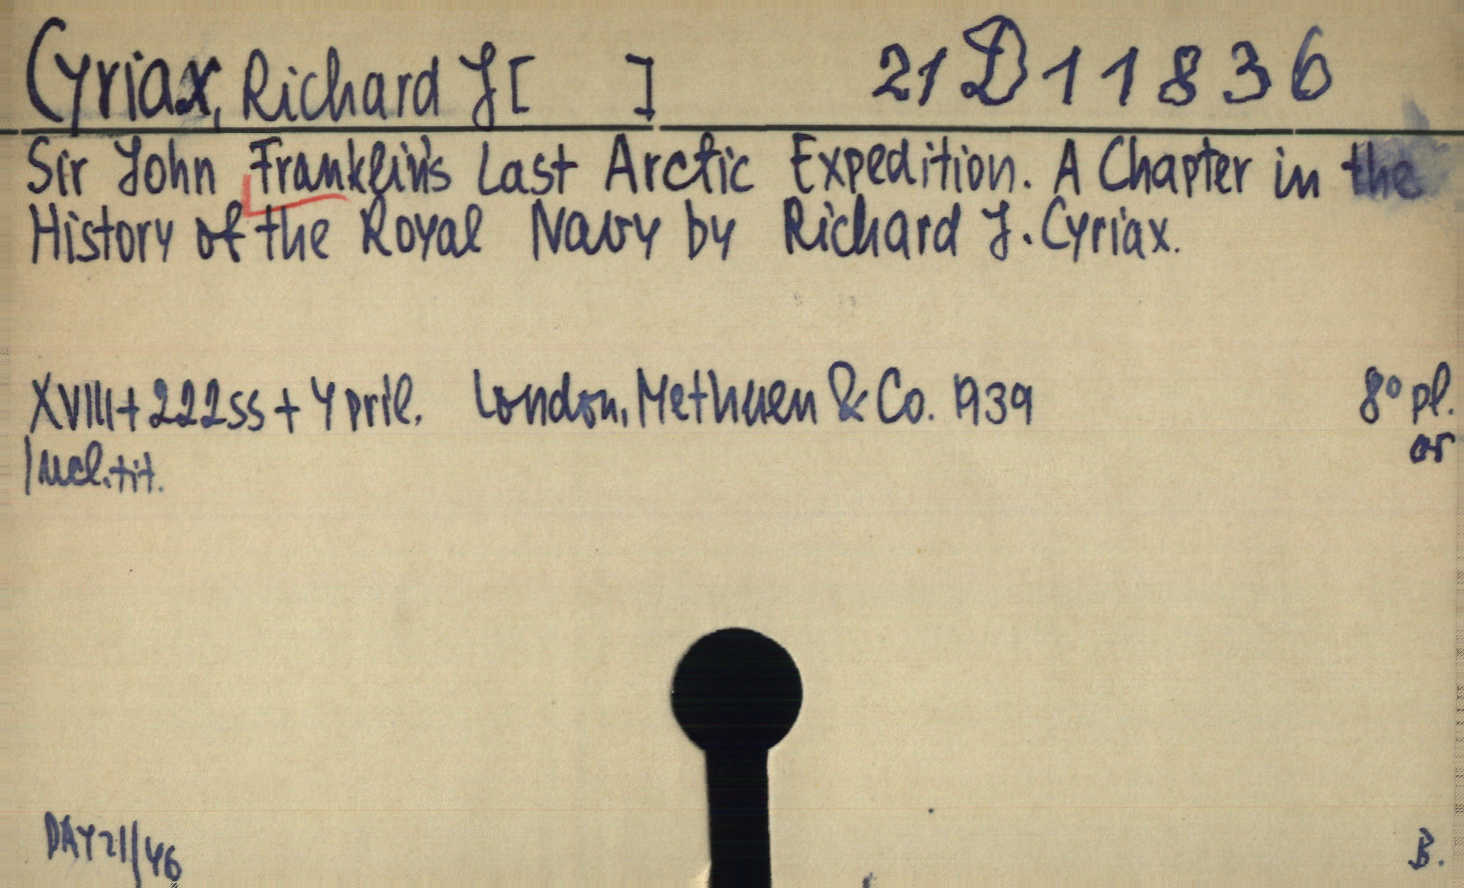 Cyriax, Richard J[ ] 21 D 11836
Sir John Franklin's Last Arctic Expedition. A Chapter in the
History of the Royal Navy by Richard J. Cyriax.
XVIII+222ss+4 pril. London, Methuen & Co. 1939 8° pl.
or
Incl.tit.
DAY21/46 B.